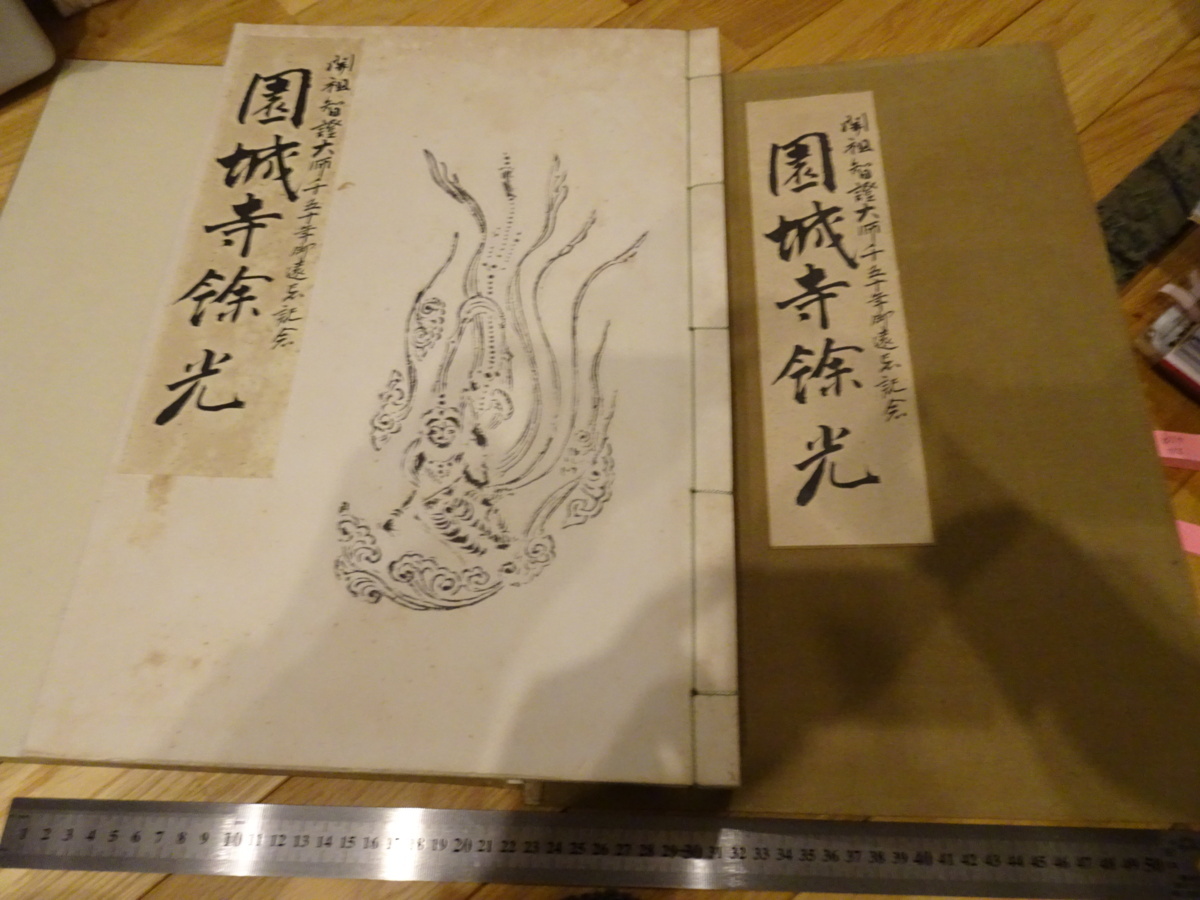 開祖智證大師千五十年御遠忌記念
園城寺餘光
開祖智證大師千五十年御遠忌記念
園城寺餘光
1 2 3 4 5 6 7 8 9 10 11 12 13 14 15 16 17 18 19 20 21 22 23 24 25 26 27 28 29 30 31 32 33 34 35 36 37 38 39 40 41 42 43 44 45 46 47 48 49 50